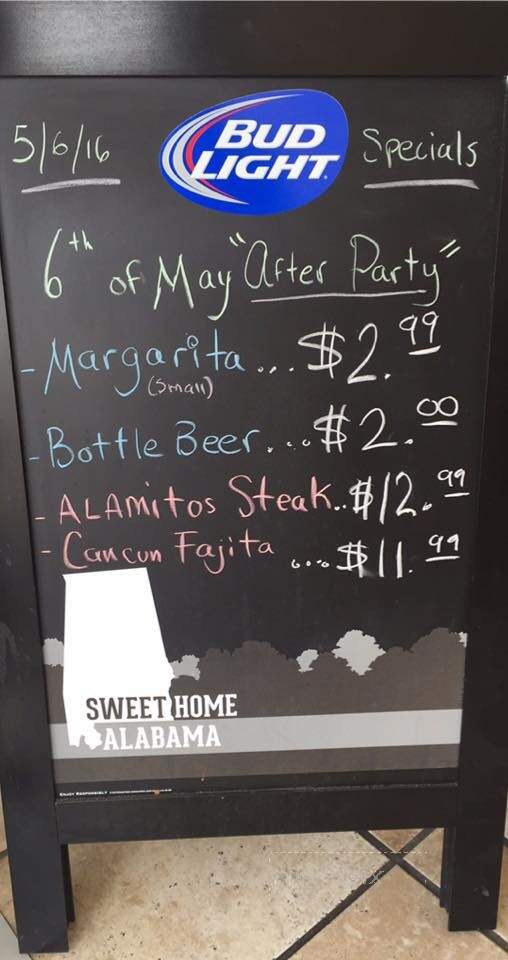 5/6/16 BUD LIGHT Specials
6th of May "After Party"
- Margarita... $2.99
(small)
- Bottle Beer.... $2.00
- ALAMitos Steak.. $12.99
- Cancun Fajita .... $11.99
SWEET HOME
ALABAMA
ENJOY RESPONSIBLY